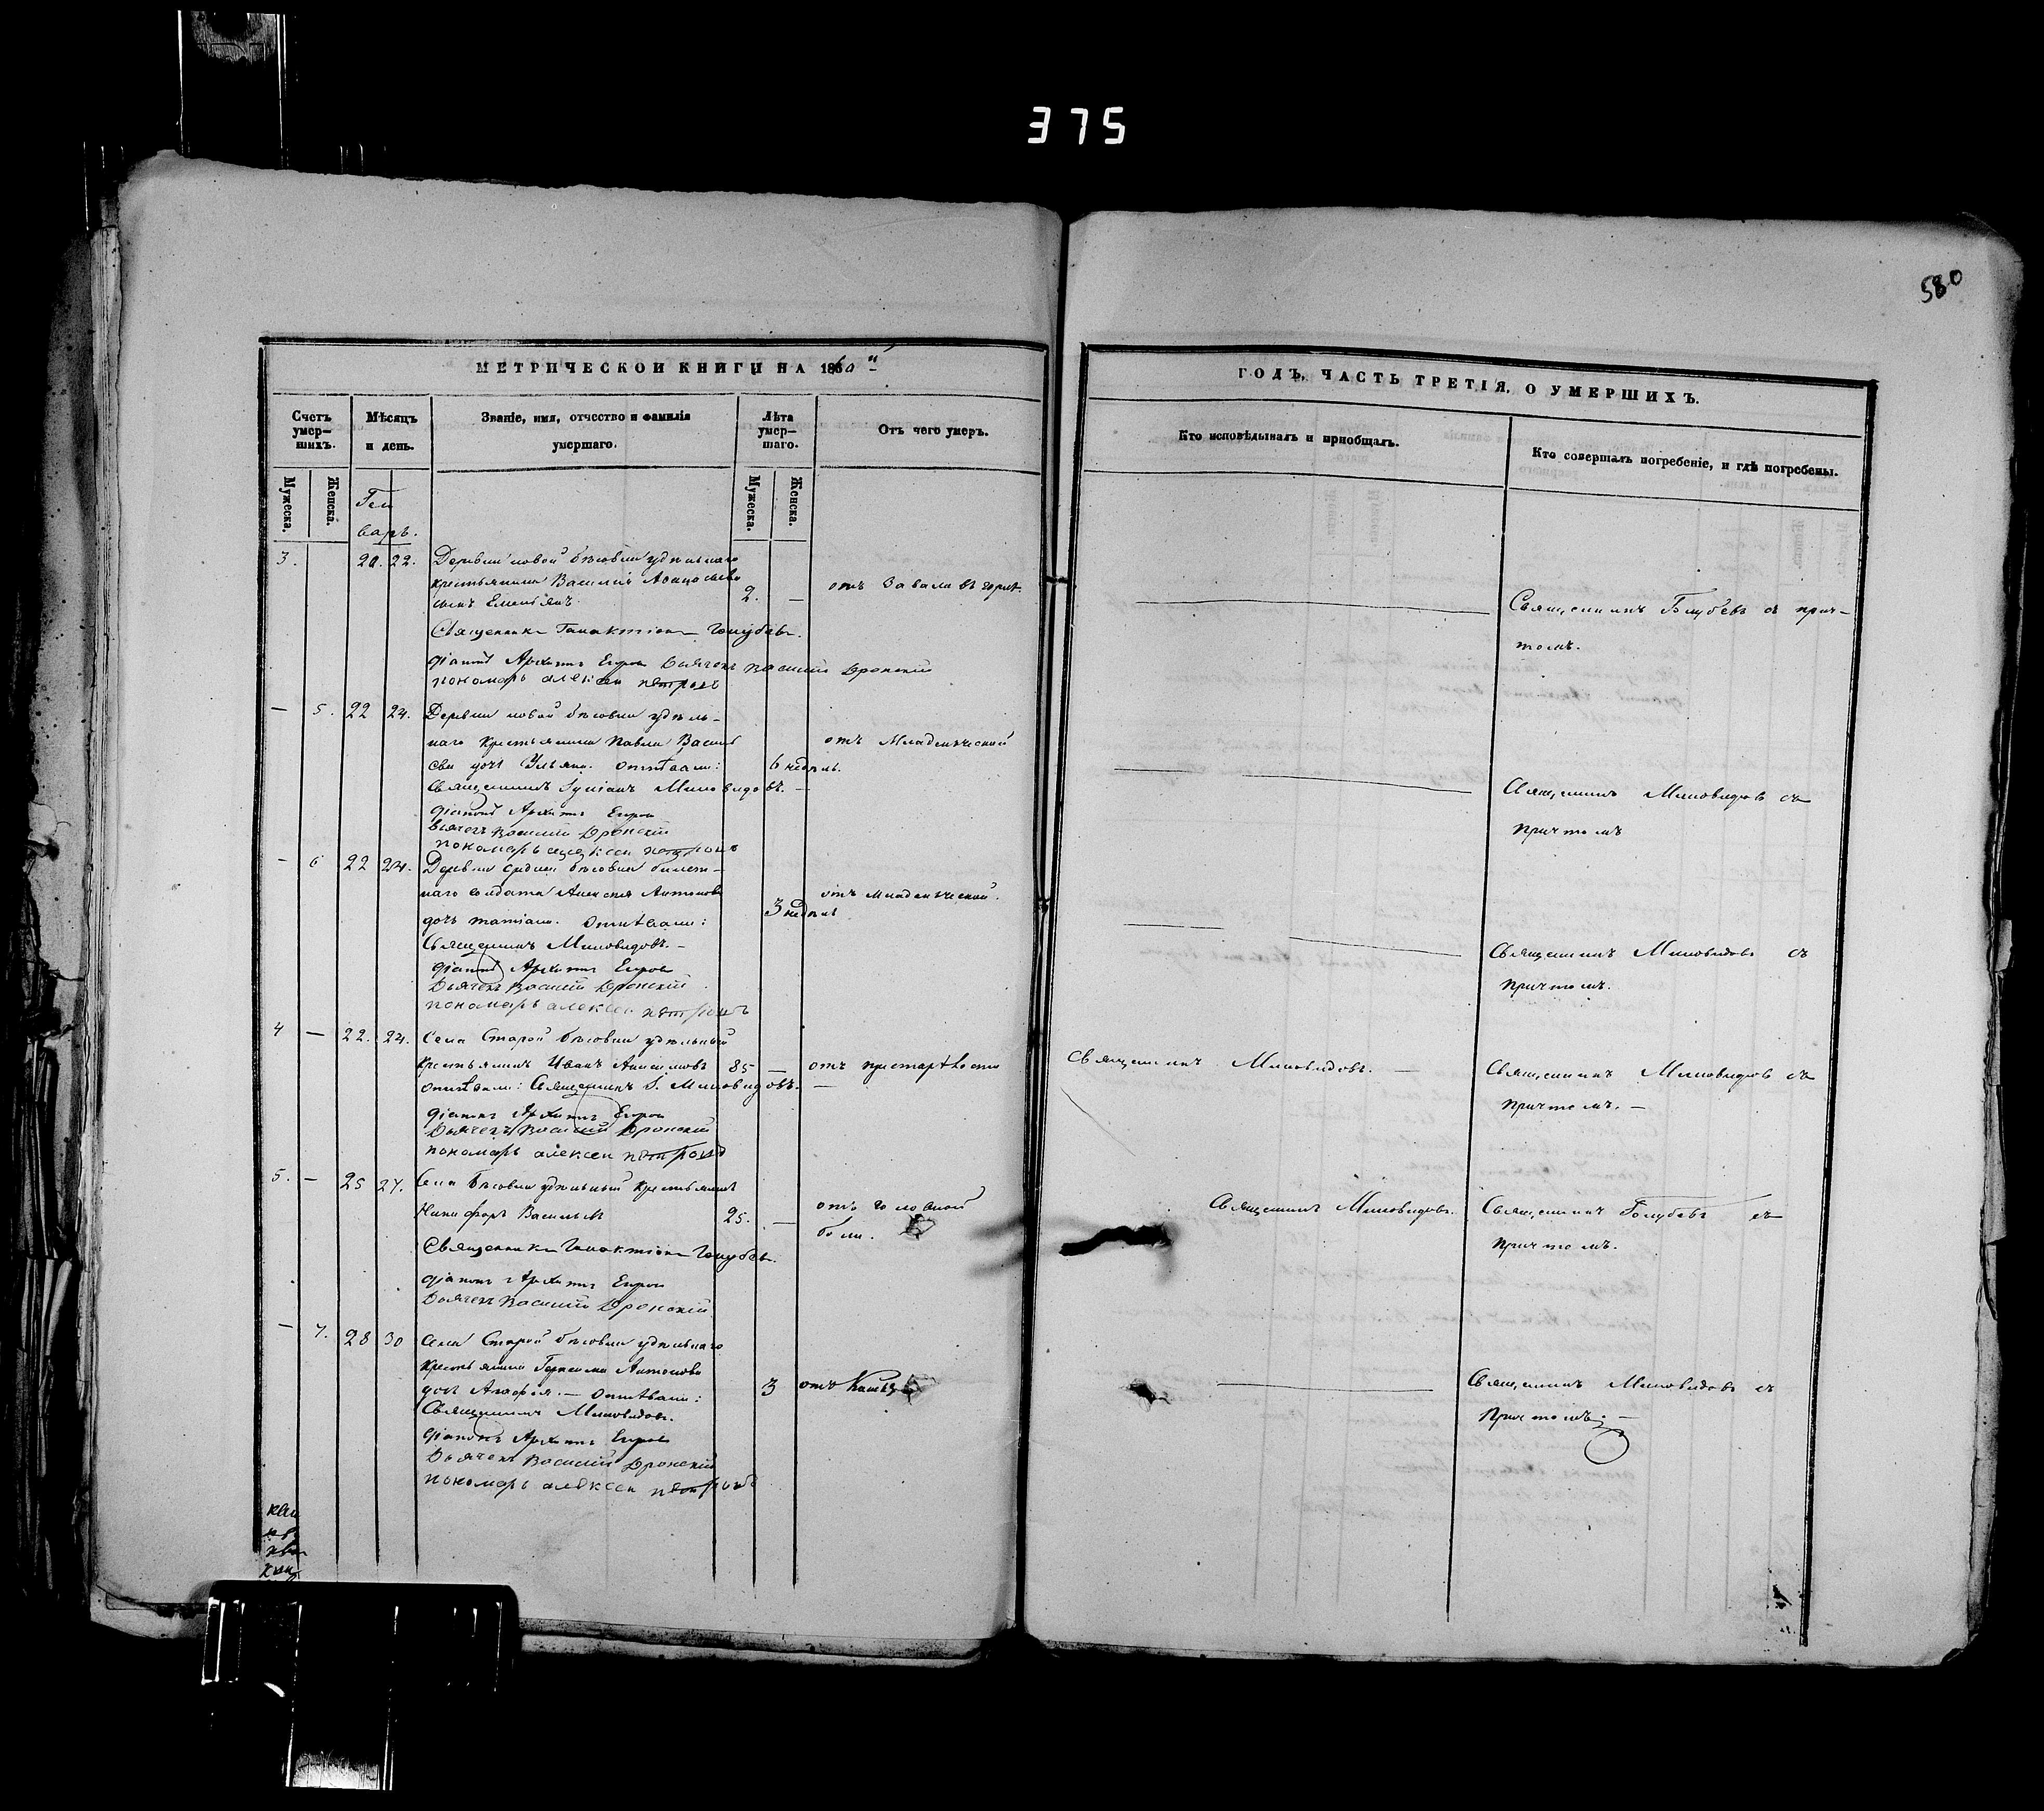 375
580
МЕТРИЧЕСКОЙ КНИГИ НА 1860й
Счетъ умер-шихъ.
Мѣсяцъ и день.
Званіе, имя, отчество и фамилія умершаго.
Лѣта умер-шаго.
Отъ чего умеръ.
Мужеска.
Женска.
Мужеска.
Женска.
Ген
варь.
3. 20. 22. Деревни новой Бѣсовки удѣльнаго
крестьянина Василія
сынъ Емельянъ 2. — отъ завала въ горлѣ.
Священникъ Галактіонъ Голубевъ.
діаконъ Архипъ Егоровъ Дьячекъ Василий Дронский
пономарь алексеи петровъ
— 5. 22 24. Деревни новой Бѣсовки удѣль-
наго крестьянина Павла Василь
ева дочь Ульяна. Отпѣвали: 6 недѣль. отъ Младенческой
Священникъ Миловидовъ. —
діаконъ Архипъ Егоровъ
Дьячекъ Василий Дронский
пономарь алексеи петровъ
— 6 22 24. Деревни средней Бѣсовки билет-
наго солдата Алексея Антонова
дочь татіана. Отпѣвали: 3 недѣль отъ младенческой.
Священникъ Миловидовъ. —
діаконъ Архипъ Егоровъ
Дьячекъ Василий Дронский
пономарь алексеи петровъ
4 — 22. 24. Села Старой Бѣсовки удѣльный
крестьянинъ Иванъ Анисимовъ 85 — отъ престарѣлости
отпѣвали: Священникъ Миловидовъ. —
діаконъ Архипъ Егоровъ
Дьячекъ Василий Дронский
пономарь алексеи петровъ
5. — 25 27. Села Бѣсовки удѣльный крестьянинъ
Никифоръ Васильевъ 25. — отъ головной
боли.
Священникъ Галактіонъ Голубевъ.
діаконъ Архипъ Егоровъ
Дьячекъ Василий Дронский
— 7. 28 30 Села Старой Бѣсовки удѣльнаго
крестьянина Герасима Антонова
дочь Агафія. — Отпѣвали: 3 отъ Кашля
Священникъ Миловидовъ.
діаконъ Архипъ Егоровъ
Дьячекъ Василий Дронский
пономарь алексеи петровъ
ГОДЪ, ЧАСТЬ ТРЕТІЯ, О УМЕРШИХЪ.
Кто исповѣдывалъ и пріобщалъ.
Кто совершалъ погребеніе, и гдѣ погребены.
Священникъ Голубевъ съ прич-
томъ.
Священникъ Миловидовъ съ
причтомъ
Священникъ Миловидовъ съ
причтомъ.
Священникъ Миловидовъ. — Священникъ Миловидовъ съ
причтомъ. —
Священникъ Миловидовъ. Священникъ Голубевъ съ
причтомъ.
Священникъ Миловидовъ съ
причтомъ. —